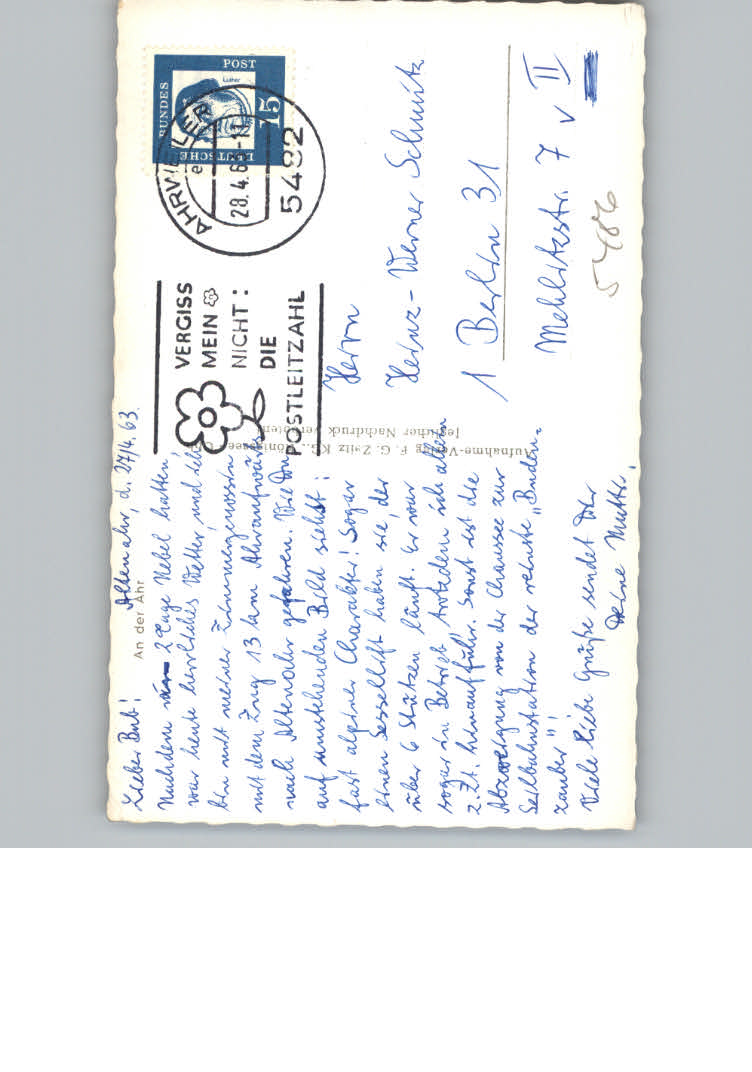 An der Ahr
Altenahr, d. 27/4. 63.
Lieber Bub!
Nachdem 2 Tage Nebel hatten,
war heute herrliches Wetter, und ich
bin mit meiner Zimmergenossin
mit dem Zug 13 km Ahraufwärts
nach Altenahr gefahren. Wie Du
auf umstehenden Bild siehst:
fast alpiner Charakter! Sogar
einen Sessellift haben sie, der
über 6 Stützen läuft. Er war
sogar in Betrieb, trotzdem ich allein
z. Zt. hinauffuhr. Sonst ist die
Abzweigung von der Chaussee zur
Seilbahnstation der reinste „Buden-
zauber"!
Viele liebe Grüße sendet Dir
Deine Mutti.
Aufnahme-Verlag F. G. Zeitz KG., Königssee
Jeglicher Nachdruck verboten!
DEUTSCHE
BUNDES
POST
Luther
15
AHRWEILER
e
28.4.63-1
5482
VERGISS
MEIN
NICHT:
DIE
POSTLEITZAHL
Herrn
Heinz-Werner Schmitz
1 Berlin 31
Mehlitzstr. 7 v II
5486